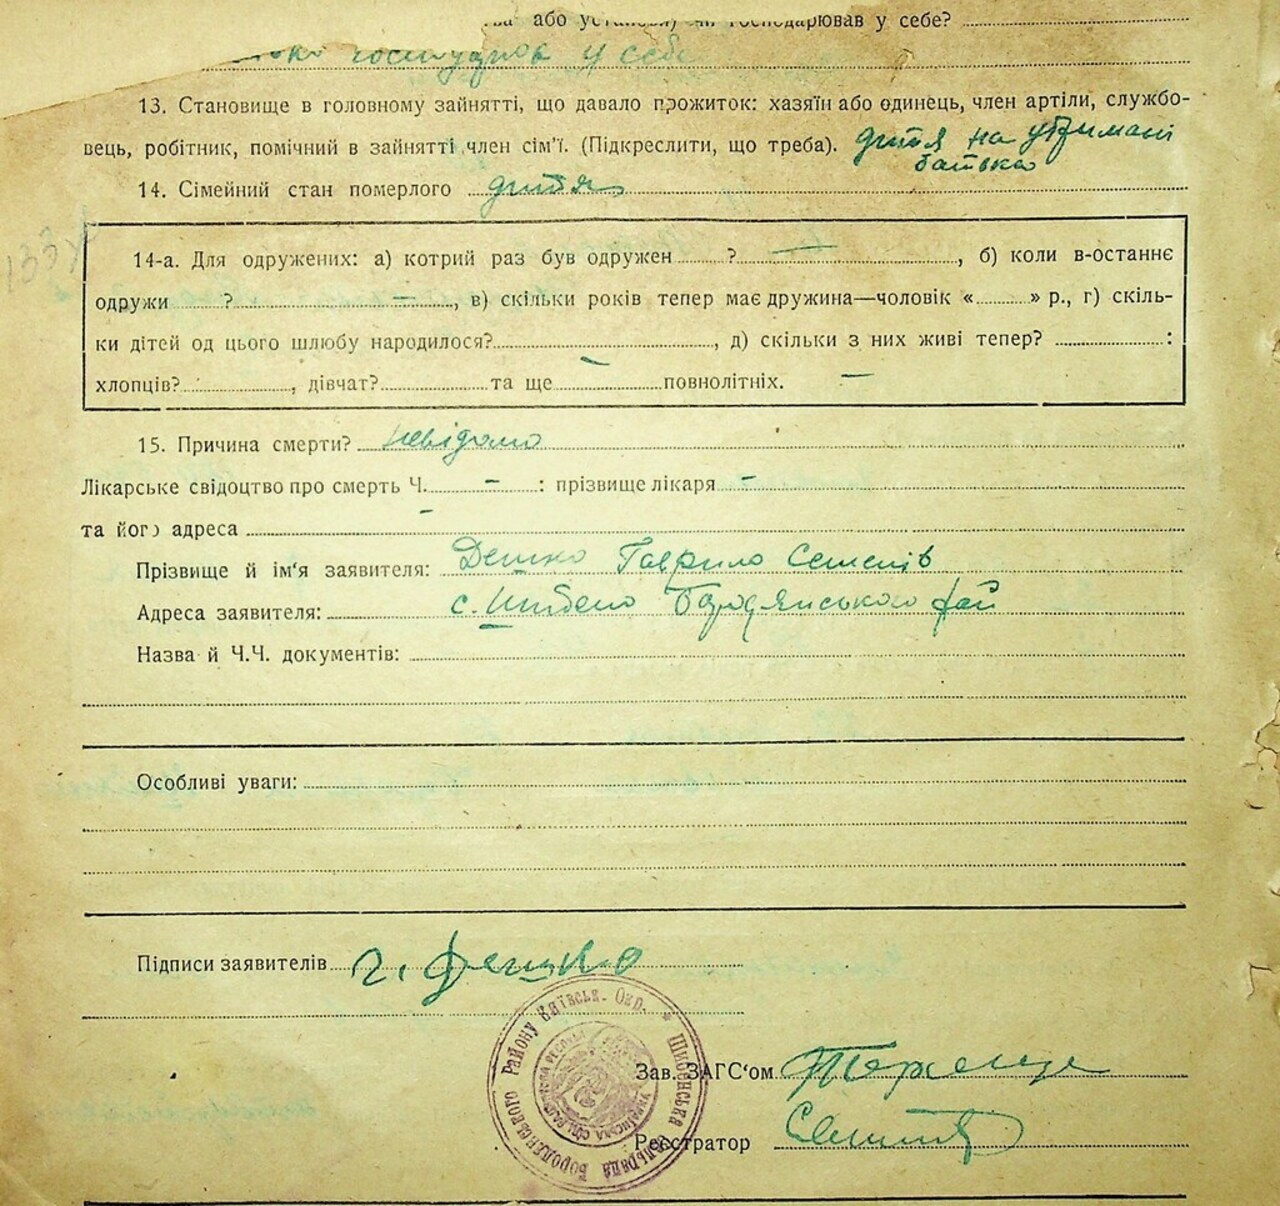 або установи) чи господарював у себе?
у себе
13. Становище в головному зайнятті, що давало прожиток: хазяїн або одинець, член артіли, службо-
вець, робітник, помічний в зайнятті член сім'ї. (Підкреслити, що треба). дитя на утримані
батька
14. Сімейний стан померлого дитя
14-а. Для одружених: а) котрий раз був одружен ? —, б) коли в-останнє
одружи ? —, в) скільки років тепер має дружина—чоловік « » р., г) скіль-
ки дітей од цього шлюбу народилося? , д) скільки з них живі тепер? :
хлопців? , дівчат? та ще — повнолітніх. —
15. Причина смерти? невідомо
Лікарське свідоцтво про смерть Ч. – : прізвище лікаря –
та його адреса –
Прізвище й ім'я заявителя: Дешко Гаврило Семенів
Адреса заявителя: с. Шибено Бородянського рай
Назва й Ч.Ч. документів:
Особливі уваги:
Підписи заявителів Г. Дешко
Бородянського Району Київськ. Окр. * Шибенська сільрада
Зав. ЗАГС'ом
Реєстратор